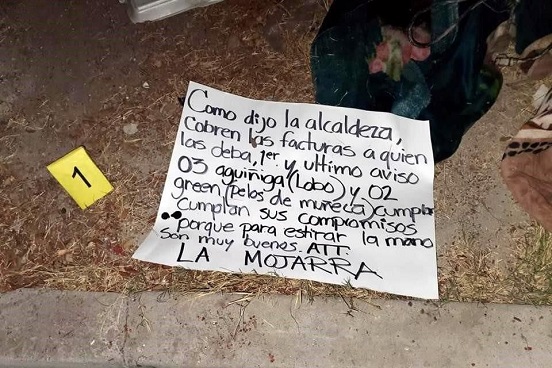 Como dijo la alcaldeza,
cobren las facturas a quien
las deba, 1er. y ultimo aviso
03 aguiñiga (Lobo) y 02
green (pelos de muñeca) cumplan
cumplan sus compromisos
porque para estirar la mano
son muy buenos. ATT.
LA MOJARRA
1